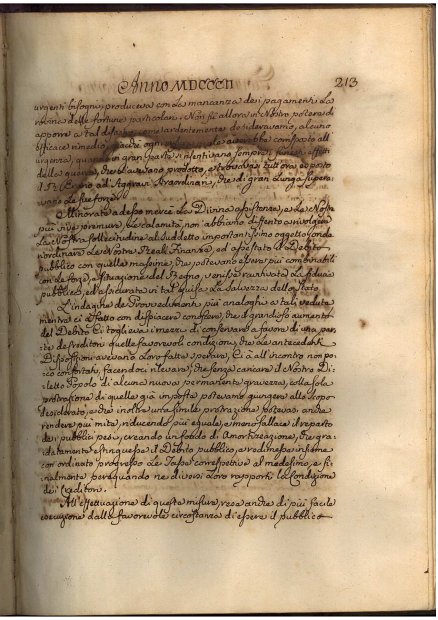 Anno MDCCCII 213
urgenti bisogni, produceva con la mancanza dei pagamenti la
rovina delle fortune particolari. Non fù allora in Nostro potere di
apporre a tal ardentemente desideravamo, alcuno
efficace rimedio, ogni avrebbe comparso all'
urgenza, in gran parte si sentivano sempre i funesti effetti
della guerra, che l'avevano prodotto, e trovavasi tuttora esposto
ad Aggravj straordinarj, che di gran lunga supera-
vano le sue forze.
Minorate adesso mercè la Divina assistenza, e le Nostre
più vive premure, le calamità, non abbiamo differito a rivolgere
la Nostra sollecitudine al suddetto importantissimo oggetto, onde
riordinare le Nostre Reali Finanze, ed assestare il Debito
pubblico con quelle massime, che potevano essere più combinabili
con le forze, e situazione del Regno, venisse ravvivata la fiducia
pubblica, ed assicurata in tal guisa la salvezza dello Stato.
L'indagine de' Provvedimenti più analoghi a tali vedute
mentre ci à fatto con dispiacere conoscere, che il grandioso aumento
del Debito Ci toglieva i mezzi di conservare a favore di una par-
te de' Creditori quelle favorevoli condizioni, che le antecedenti
Disposizioni avevano loro fatte sperare, Ci à all'incontro non po-
co confortati, facendoci rilevare, che senza caricare il Nostro Di-
letto Popolo di alcuna nuova permanente gravezza, colla sola
protrazione di quelle già imposte potevamo giungere allo scopo
desiderato, e che inoltre una simile protrazione poteva andre
rendere più mite, riducendo più eguale, e meno fallace il reparto
de' pubblici pesi, creando un fondo di Amortizzazione, che gra-
datamente estinguesse il Debito pubblico, e rodinesse insieme
con ordinato progresso le Tasse correspettive al medesimo, e fi-
nalmente pareguando ne' diversi loro rapporti la condizione
dei Creditori.
All'effettuazione di questa misura, resa andre di più facile
esecuzione dalla favorevole circostanza di essere il pubblico